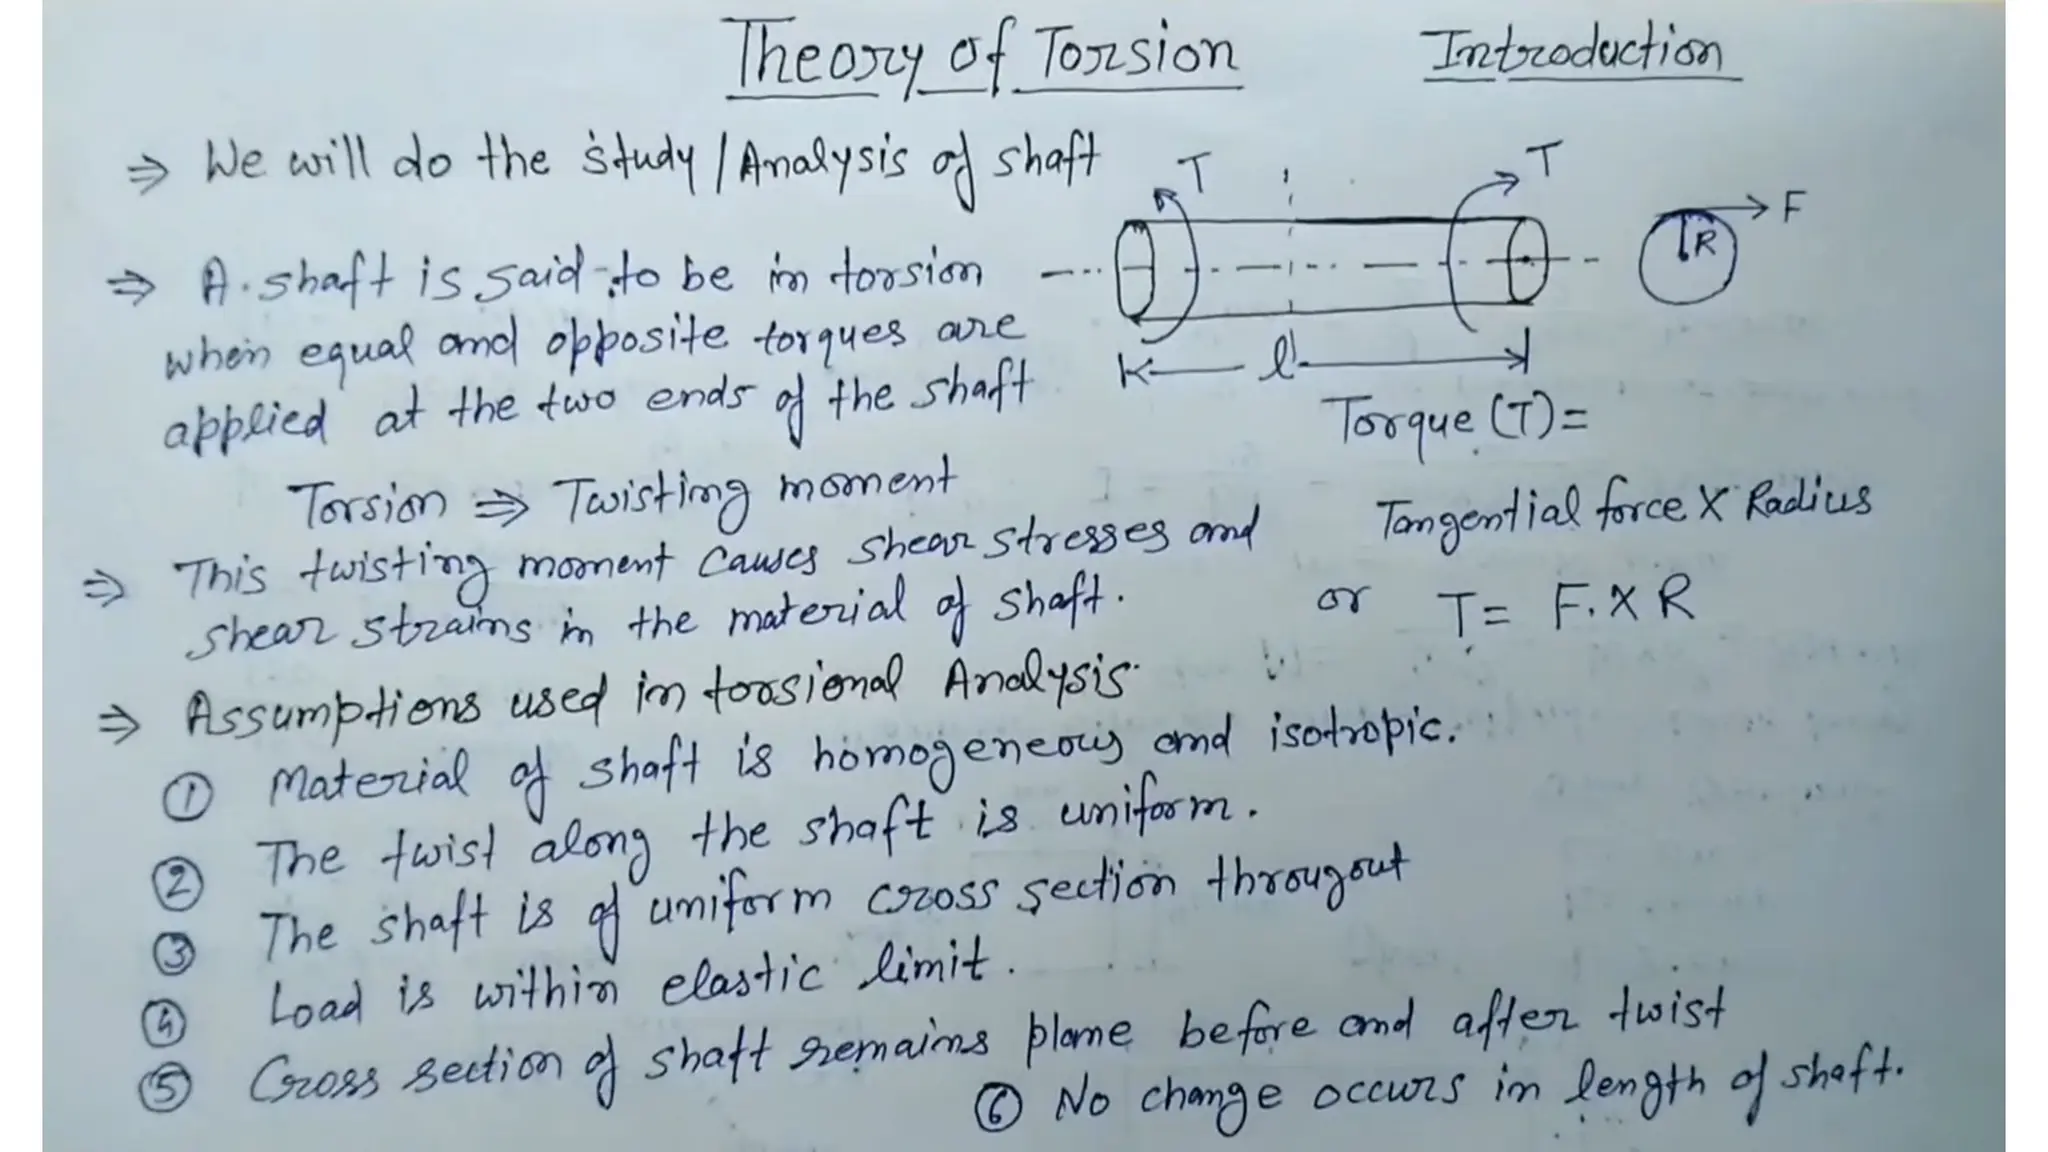 Theory of Torsion Introduction
⇒ We will do the study / Analysis of shaft
⇒ A shaft is said to be in torsion
when equal and opposite torques are
applied at the two ends of the shaft
Torsion ⇒ Twisting moment
⇒ This twisting moment causes shear stresses and
shear strains in the material of shaft.
T T F
R
l
Torque (T) =
Tangential force X Radius
or T = F. X R
⇒ Assumptions used in torsional Analysis
① Material of shaft is homogeneous and isotropic.
② The twist along the shaft is uniform.
③ The shaft is of uniform cross section througout
④ Load is within elastic limit.
⑤ Cross section of shaft remains plane before and after twist
⑥ No change occurs in length of shaft.